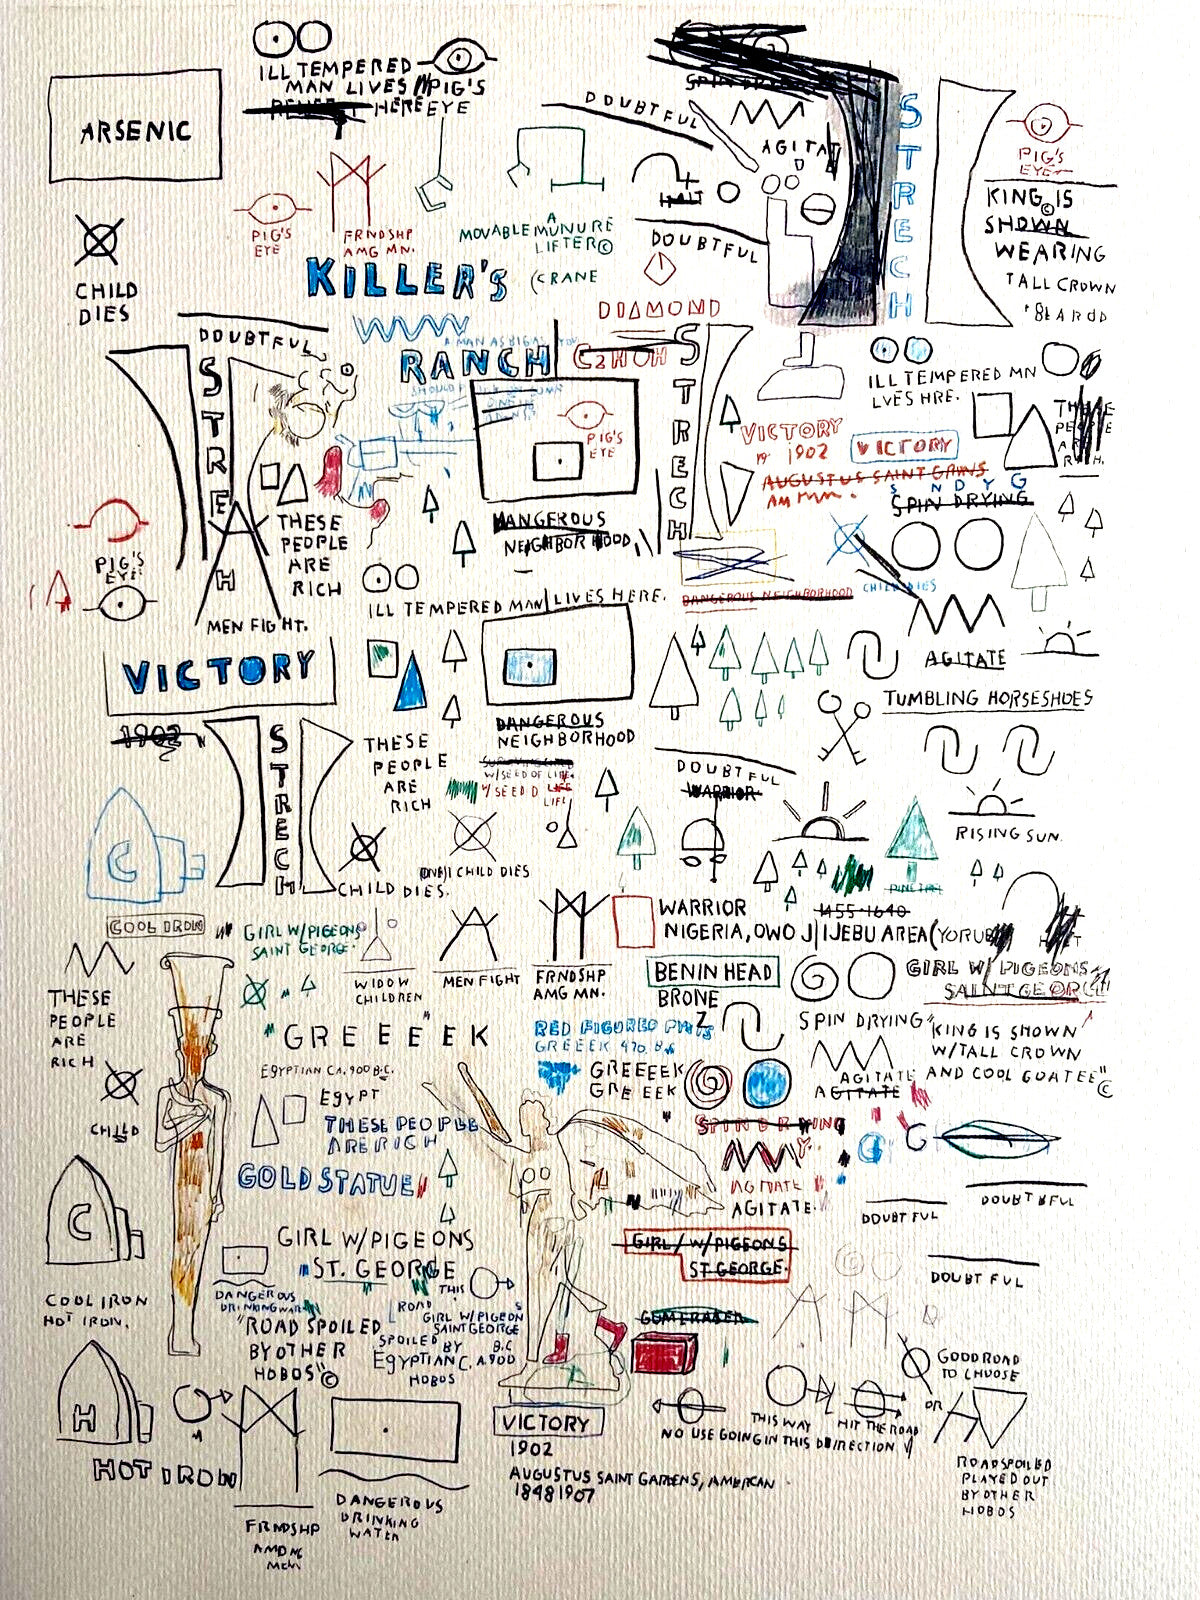 ILL TEMPERED
MAN LIVES
HERE
PIG'S
EYE
ARSENIC
DOUBTFUL
SPIN DRYING
AGITAT
STRECH
PIG'S
EYE
KING IS ©
SHOWN
WEARING
TALL CROWN
CHILD
DIES
PIG'S
EYE
FRNDSHP
AMG MN.
A
MOVABLE MUNURE
LIFTER ©
(CRANE
HALT
DOUBTFUL
DIAMOND
KILLER'S
RANCH
A MAN AS BIG AS YOU
C2HOH
DOUBTFUL
STRECH
STRECH
PIG'S
EYE
VICTORY
19 1902
VICTORY
AUGUSTUS SAINT GAINS
AM MN.
ILL TEMPERED MN
LVES HRE.
THESE
PEOPLE
ARE
RICH.
S N D Y G
SPIN DRYING
THESE
PEOPLE
ARE
RICH
DANGEROUS
NEIGHBORHOOD,
PIG'S
EYE
MEN FIGHT.
ILL TEMPERED MAN LIVES HERE.
DANGEROUS NEIGHBORHOOD
CHILD DIES
AGITATE
VICTORY
1902
DANGEROUS
NEIGHBORHOOD
TUMBLING HORSESHOES
STRECH
THESE
PEOPLE
ARE
RICH
W/SEED OF LIFE
W/SEED D LIFE
LIFE
DOUBTFUL
WARRIOR
RISING SUN.
C
CHILD DIES.
(ONE) 1 CHILD DIES
PINETREE
1455-1640
COOL IRON
GIRL W/PIGEONS
SAINT GEORGE.
WIDOW
CHILDREN
MEN FIGHT
FRNDSHP
AMG MN.
WARRIOR
NIGERIA, OWO J|IJEBU AREA (YORUBA
HALT
BENIN HEAD
BRONE
Z
GIRL W/ PIGEONS
SAINT GEORGE
THESE
PEOPLE
ARE
RICH
"GREEEEK
RED FIGURED
GREEEK 470 B.
SPIN DRYING
"KING IS SHOWN
W/TALL CROWN
AND COOL GOATEE" ©
EGYPTIAN CA. 900 B.C.
GREEEEK
GREEEK
AGITATE
AGITATE
CHILD
EGYPT
THESE PEOPLE
ARE RICH
SPIN DRYING
G
G
GOLD STATUE
AGITATE
AGITATE.
DOUBTFUL
DOUBTFUL
C
GIRL W/PIGEONS
ST. GEORGE
GIRL/W/PIGEONS
ST GEORGE.
DOUBTFUL
COOL IRON
HOT IRON.
DANGEROUS
DRINKING WAR
THIS
ROAD
GIRL W/PIGEONS
SAINT GEORGE
SPOILED BY B.C
EGYPTIAN C. A. 900
HOBOS
"ROAD SPOILED
BY OTHER
HOBOS" ©
GUM ERASER
GOOD ROAD
TO CHOOSE
OR
H
HOT IRON
VICTORY
1902
AUGUSTUS SAINT GARDENS, AMERCAN
18481907
THIS WAY
HIT THE ROAD
NO USE GOING IN THIS DIIRECTION
ROAD SPOILED
PLAYED OUT
BY OTHER
HOBOS
FRNDSHP
AMONG
MEN
DANGEROUS
DRINKING
WATER